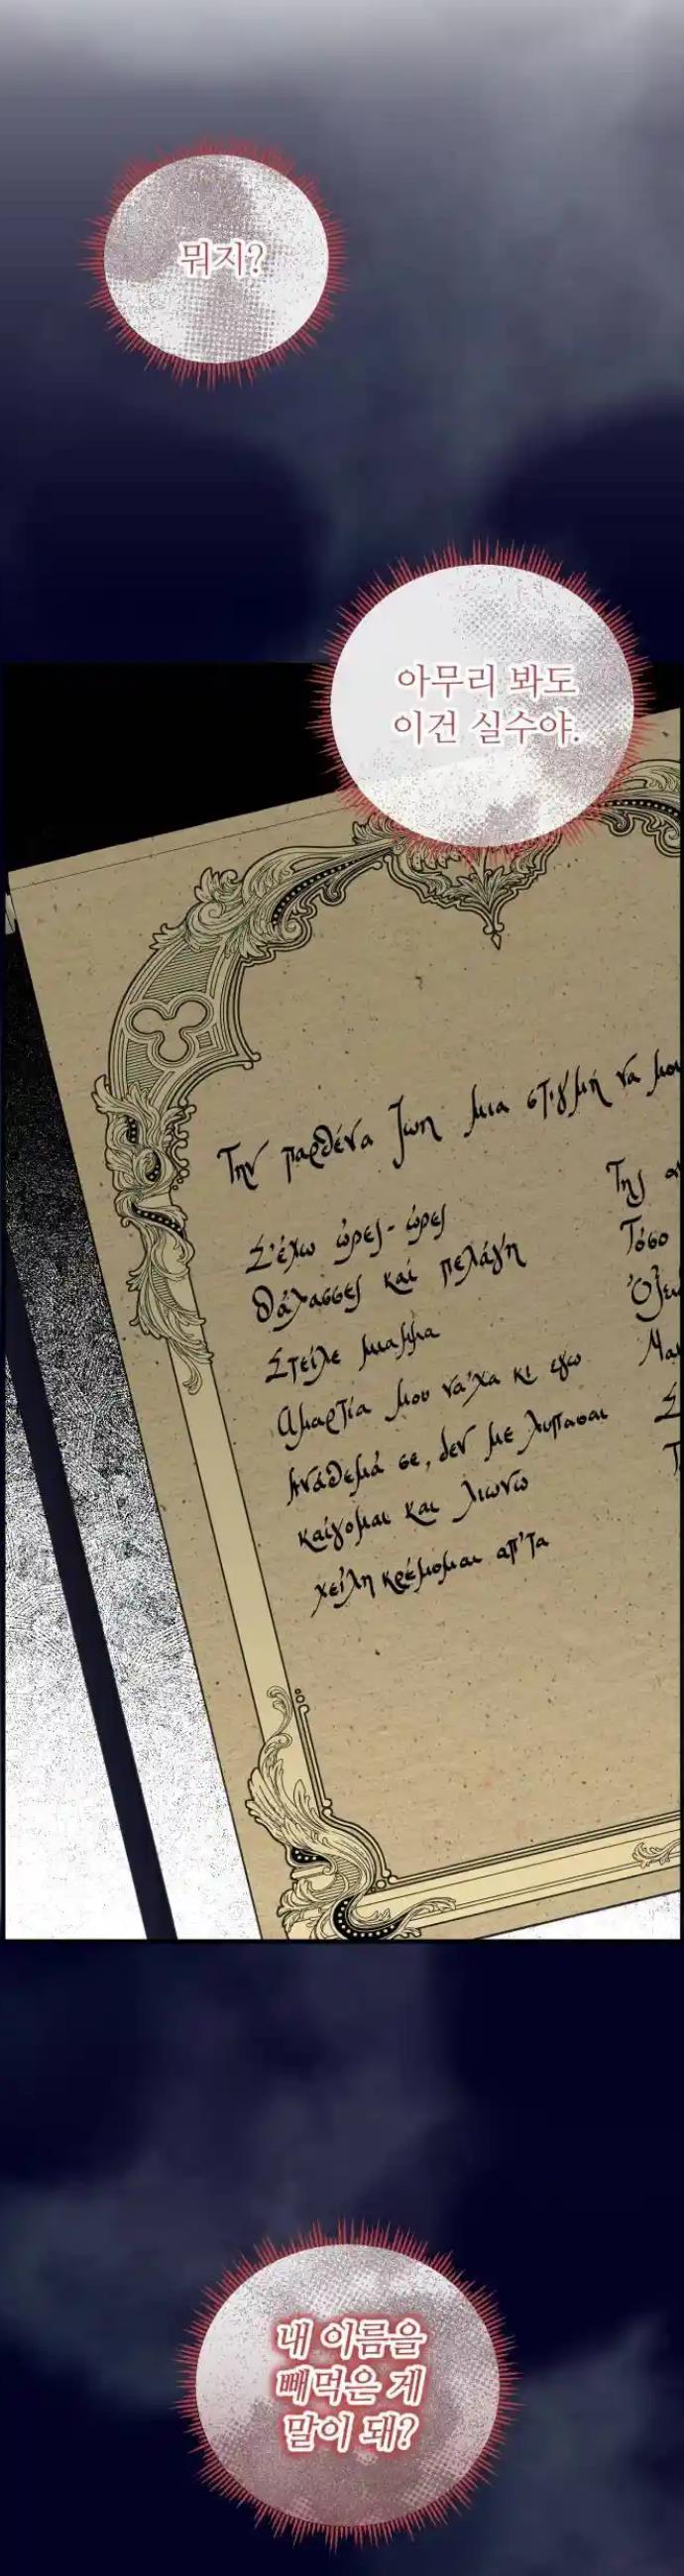 뭐지?
아무리 봐도
이건 실수야.
Την παρθένα ζωη μια στιγμή να μου
Σ'έχω ώρες-ώρες
Θάλασσες και πελάγη
Στείλε
Αμαρτία μου να'χα κι εγω
Ανάθεμά σε, δεν με λυπασαι
καίγομαι και λιωνω
χείλη κρέμομαι απ'τα
Της
Τόσο
내 이름을
빼먹은 게
말이 돼?